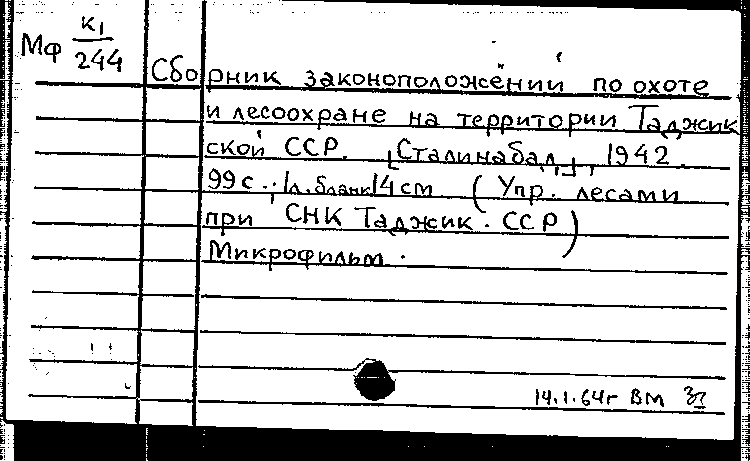 Мф К1/244
Сборник законоположений по охоте
и лесоохране на территории Таджик
ской ССР. [Сталинабад], 1942.
99 с.; 1л. бланк 14 см (Упр. лесами
при СНК Таджик. ССР)
Микрофильм.
14.1.64г ВМ